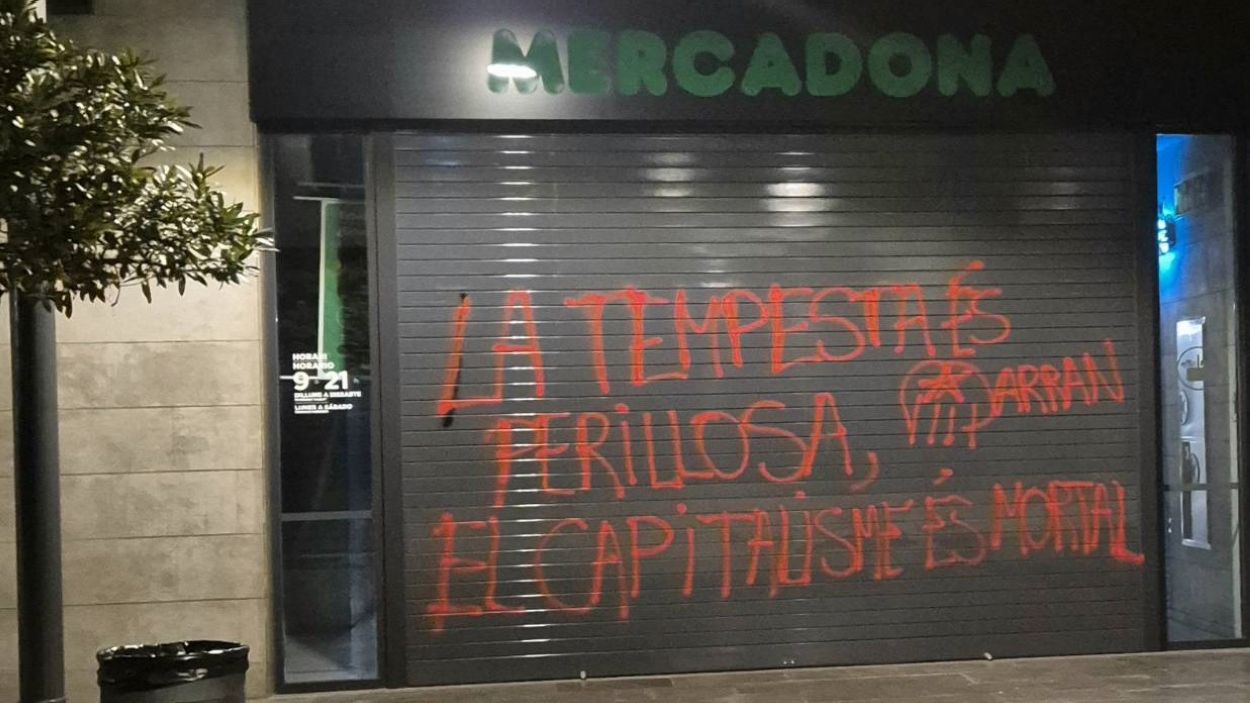 MERCADONA
HORARI
HORARIO
9 - 21
DILLUNS A DISSABTE
LUNES A SÁBADO
LA TEMPESTA ÉS
PERILLOSA,
ARRAN
EL CAPITALISME ÉS MORTAL